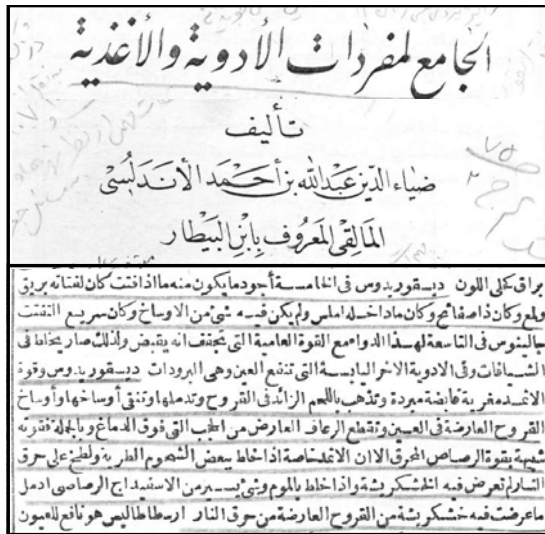 الجامع لمفردات الأدوية والأغذية
تأليف
ضياء الدين عبد الله بن أحمد الأندلسى
المالقى المعروف بابن البيطار
براق كحلى اللون ديسقوريدوس فى الخامسة أجود ما يكون منه ما اذا فتت كان لفتاته بريق
ولمع وكان ذا صفائح وكان ما داخله املس ولم يكن فيه شئ من الاوساخ وكان سريع التفتت
جالينوس فى التاسعة لهذا الدواء مع القوة العامية التى تجفف انه يقبض ولذلك صار يخلط فى
الشيافات وفى الادوية الاخر اليابسة التى تنفع العين وهى البرودات ديسقوريدوس وقوة
الاثمد مغرية قابضة مبردة وتذهب باللحم الزائد فى القروح وتدملها وتنقى أوساخها وأوساخ
القروح العارضة فى العين وتقطع الرعاف العارض من الحجب التى فوق الدماغ وبالجملة فقوته
شبيهة بقوة الرصاص المحرق الا ان الاثمد خاصة اذا خلط ببعض الشحوم الطرية ولطخ على حرق
النار لم تعرض فيه الخشكريشة واذا خلط بالموم وشئ يسير من الاسفيداج الرصاصى ادمل
ما عرضت فيه خشكريشة من القروح العارضة من حرق النار ارسطاطاليس هو نافع للعيون